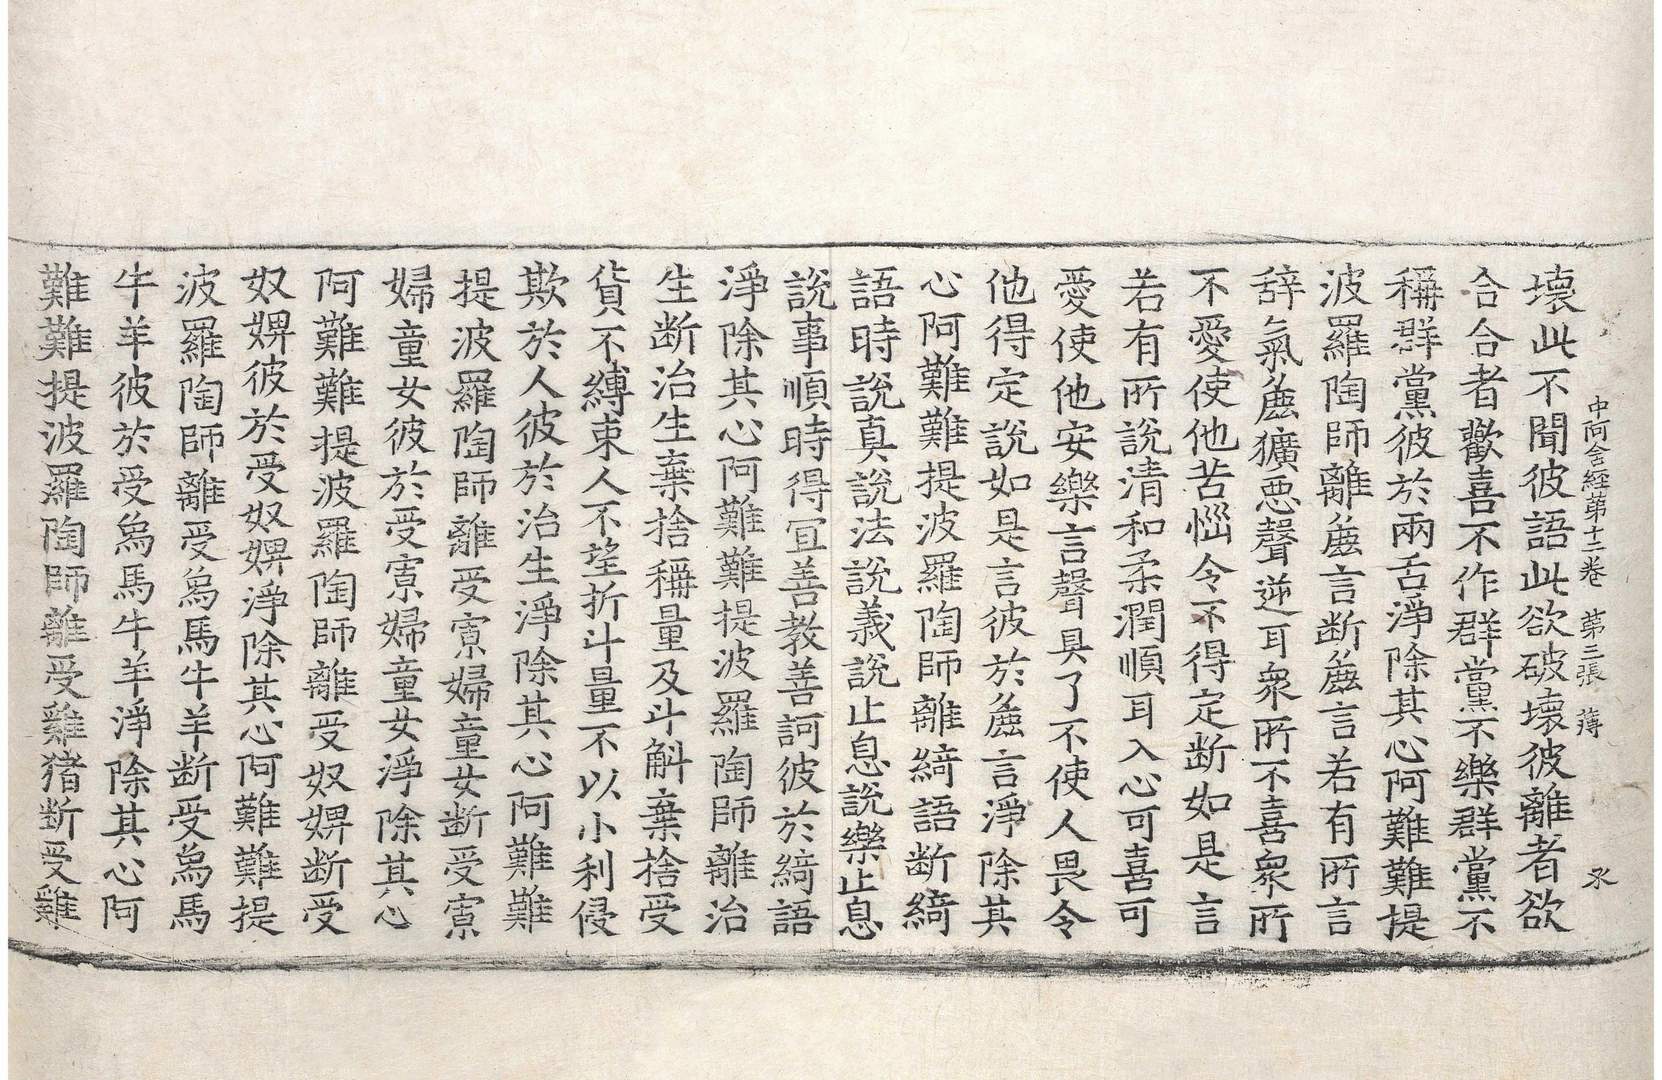 中阿含經第十二卷 第三張 薄
壞此不聞彼語此欲破壞彼離者欲
合合者歡喜不作群黨不樂群黨不
稱群黨彼於兩舌淨除其心阿難難提
波羅陶師離麁言断麁言若有所言
辞氣麁獷惡聲逆耳衆所不喜衆所
不愛使他苦惱令不得定断如是言
若有所說清和柔潤順耳入心可喜可
愛使他安樂言聲具了不使人畏令
他得定說如是言彼於麁言淨除其
心阿難難提波羅陶師離綺語断綺
語時說真說法說義說止息說樂止息
說事順時得宜善教善訶彼於綺語
淨除其心阿難難提波羅陶師離治
生断治生棄捨稱量及斗斛棄捨受
貨不縛束人不望折斗量不以小利侵
欺於人彼於治生淨除其心阿難難
提波羅陶師離受寡婦童女断受寡
婦童女彼於受寡婦童女淨除其心
阿難難提波羅陶師離受奴婢断受
奴婢彼於受奴婢淨除其心阿難難提
波羅陶師離受象馬牛羊断受象馬
牛羊彼於受象馬牛羊淨除其心阿
難難提波羅陶師離受雞猪断受雞